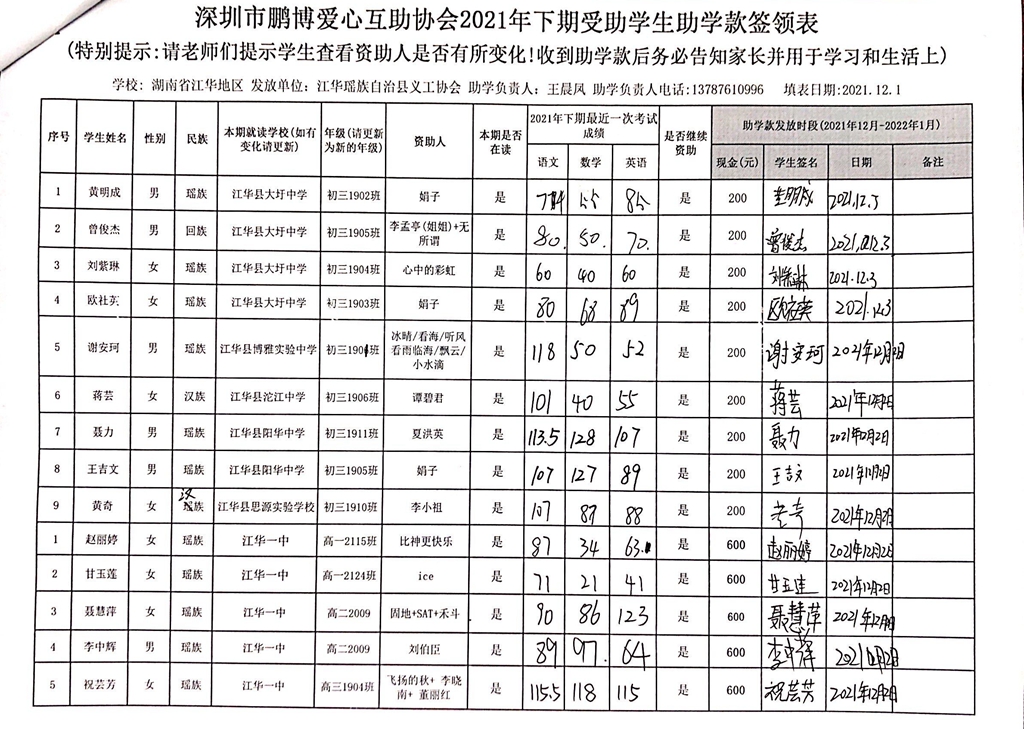 深圳市鹏博爱心互助协会2021年下期受助学生助学款签领表
(特别提示:请老师们提示学生查看资助人是否有所变化!收到助学款后务必告知家长并用于学习和生活上)
学校: 湖南省江华地区 发放单位: 江华瑶族自治县义工协会 助学负责人: 王晨风 助学负责人电话:13787610996 填表日期:2021.12.1
序号 学生姓名 性别 民族 本期就读学校(如有变化请更新) 年级(请更新为新的年级) 资助人 本期是否在读 2021年下期最近一次考试成绩 是否继续资助 助学款发放时段(2021年12月-2022年1月)
语文 数学 英语 现金(元) 学生签名 日期 备注
1 黄明成 男 瑶族 江华县大圩中学 初三1902班 娟子 是 55 85 是 200 黄明成 2021.12.3
2 曾俊杰 男 回族 江华县大圩中学 初三1905班 李孟亭(姐姐)+无所谓 是 80. 50. 70. 是 200 曾俊杰 2021.12.3
3 刘紫琳 女 瑶族 江华县大圩中学 初三1904班 心中的彩虹 是 60 40 60 是 200 刘紫琳 2021.12.3
4 欧社英 女 瑶族 江华县大圩中学 初三1903班 娟子 是 80 68 89 是 200 2021.12.3
5 谢安珂 男 瑶族 江华县博雅实验中学 初三1901班 冰晴/看海/听风看雨临海/飘云/小水滴 是 118 50 52 是 200 谢安珂 2021年12月2日
6 蒋芸 女 汉族 江华县沱江中学 初三1906班 谭碧君 是 101 40 55 是 200 蒋芸 2021年12月2日
7 聂力 男 瑶族 江华县阳华中学 初三1911班 夏洪英 是 113.5 128 107 是 200 聂力 2021年12月2日
8 王吉文 男 瑶族 江华县阳华中学 初三1905班 娟子 是 107 127 89 是 200 王吉文 2021年12月2日
9 黄奇 女 汉族 江华县思源实验学校 初三1910班 李小祖 是 107 87 88 是 200 2021年12月2日
1 赵丽婷 女 瑶族 江华一中 高一2115班 比神更快乐 是 87 34 63. 是 600 赵丽婷 2021年12月2日
2 甘玉莲 女 瑶族 江华一中 高一2124班 ice 是 71 21 41 是 600 甘玉莲 2021年12月2日
3 聂慧萍 女 瑶族 江华一中 高二2009 固地+SAT+禾斗 是 90 86 123 是 600 聂慧萍 2021年12月2日
4 李中辉 男 瑶族 江华一中 高二2009 刘伯臣 是 89 97. 64 是 600 李中辉 2021年12月2日
5 祝芸芳 女 瑶族 江华一中 高三1904班 飞扬的秋+ 李晓南+ 董丽红 是 115.5 118 115 是 600 祝芸芳 2021年12月2日